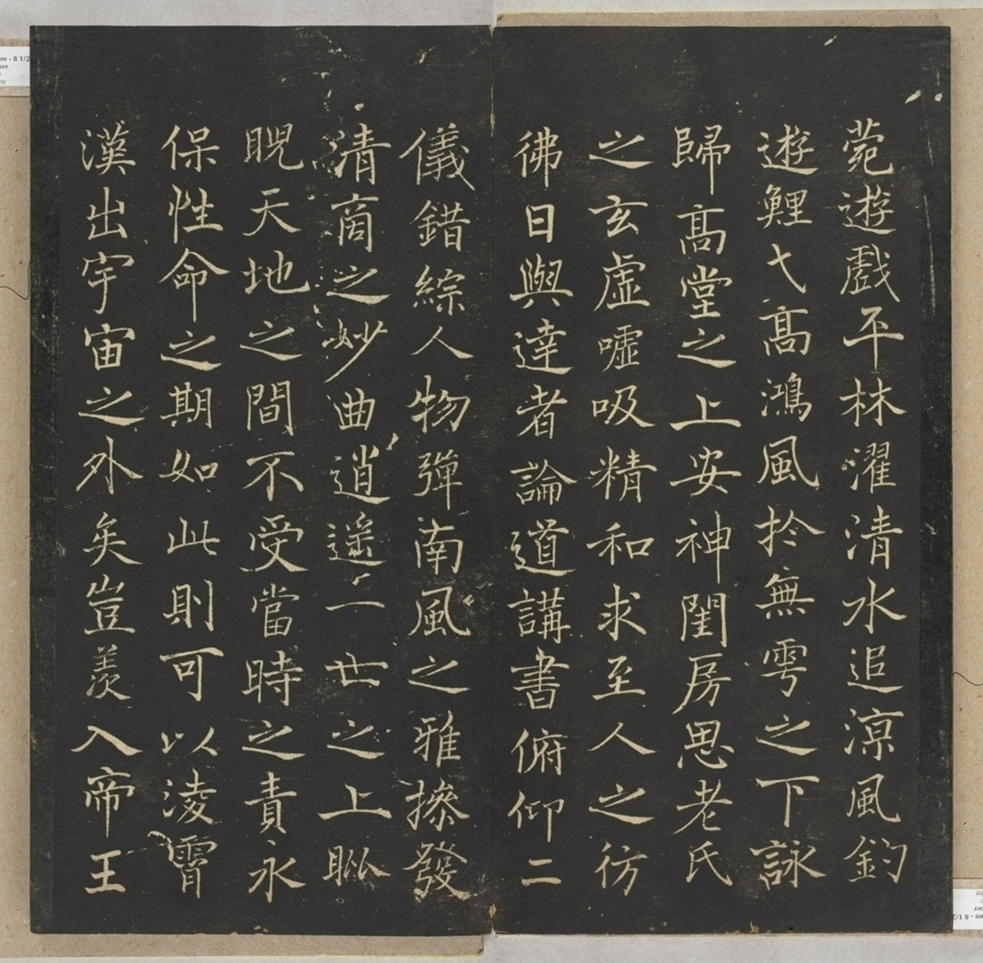 菀遊戲平林濯清水追涼風釣
遊鯉弋髙鴻風扵無雩之下詠
歸髙堂之上安神閨房思老氏
之玄虛噓吸精和求至人之彷
彿日與達者論道講書俯仰二
儀錯綜人物彈南風之雅操發
清商之妙曲逍遙一世之上
睨天地之間不受當時之責永
保性命之期如此則可以淩霄
漢出宇宙之外矣豈羨入帝王